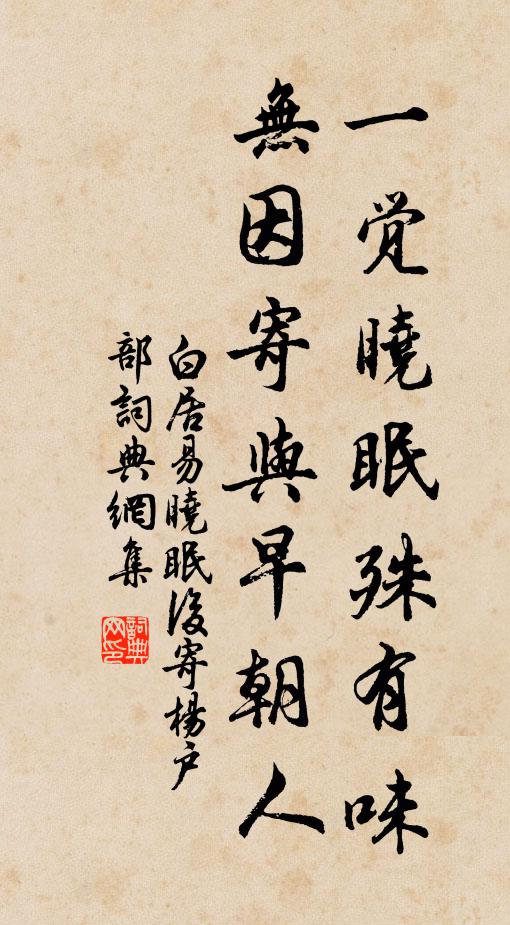 一覚曉眠殊有味
無因寄與早朝人
白居易曉眠後寄楊户
部詞典網集
詞典
网印